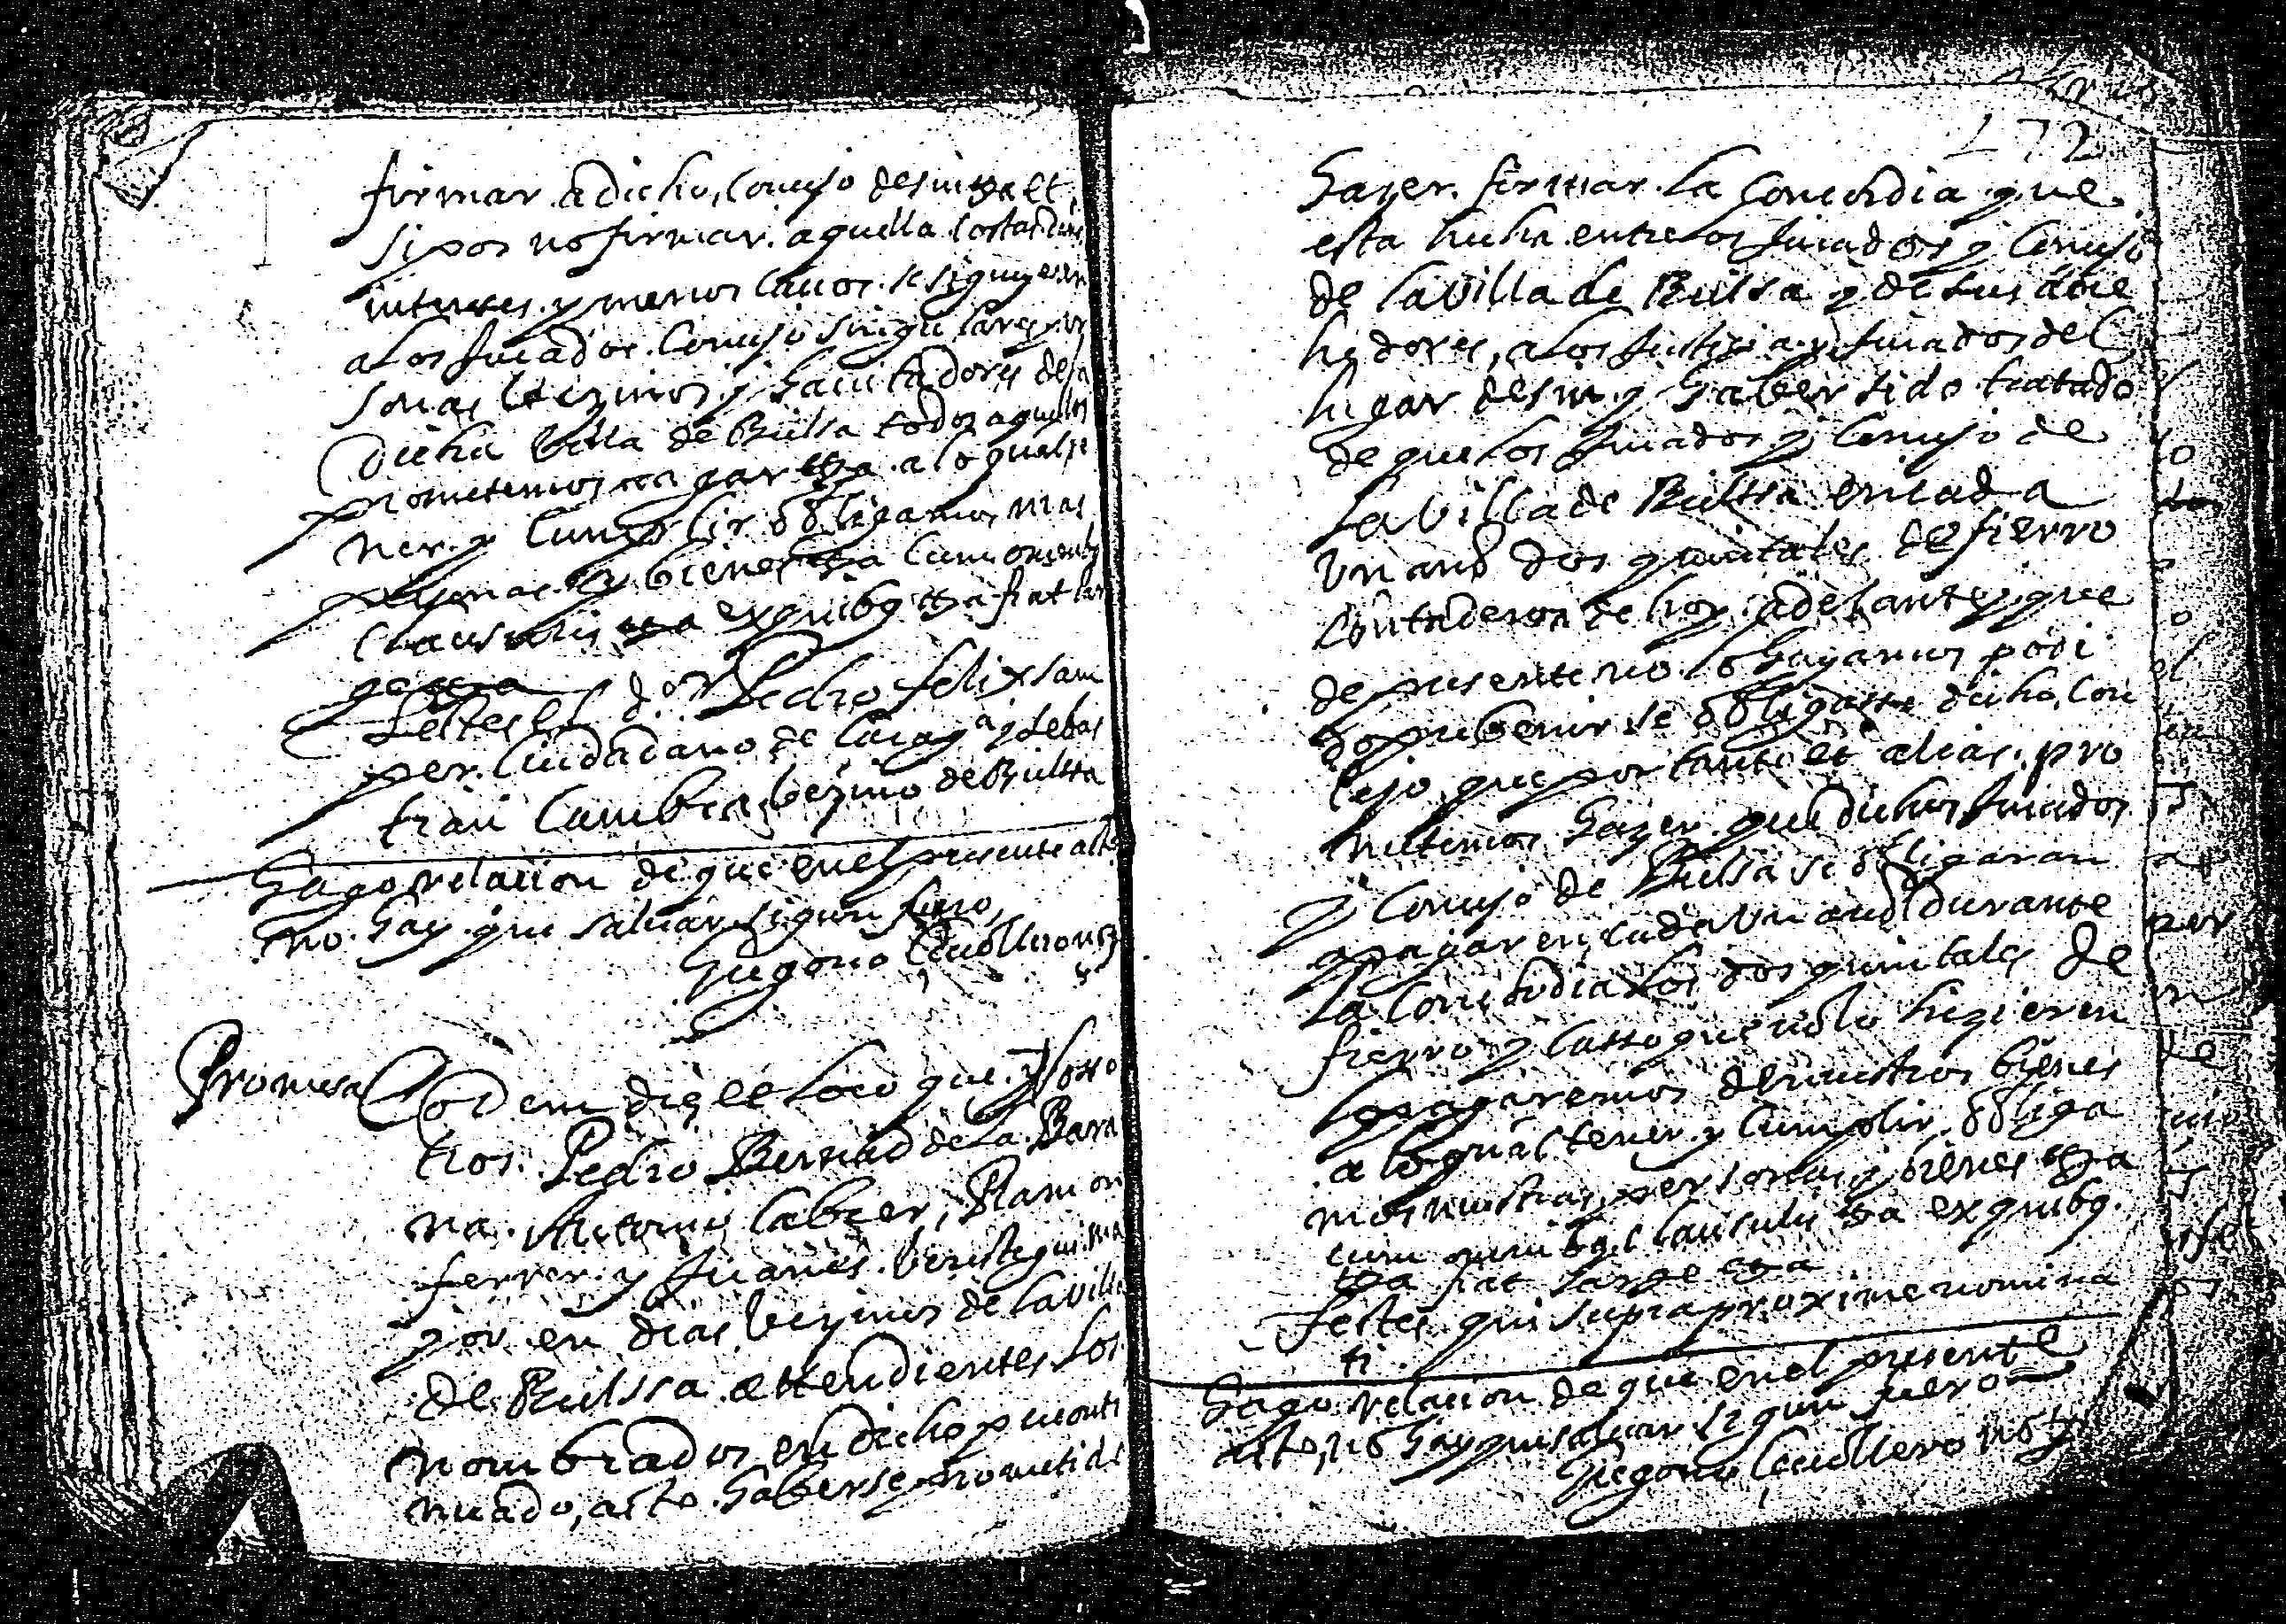 firmar a dicho, concejo de sin et
si por no firmar aquella costas
intereses y menos cauos se siguiesen
a los Jurados Concejo singulares per
sonas Vezinos y hauitadores de la
dicha Villa de Bielsa todos aquellos
prometemos pagar a lo qual te
ner y Cumplir obligamos
personas y bienes Cum omnibus
clausulis ex quibus fiat lar
ge
Testes el d.or Pedro felix sam
per Ciudadano de Carag.a y Sebas
tian Cambra, bezino de Bielssa
Hago relacion de que en el presente acto
no hay que saluar segun fuero
Gregorio not
Promesa Eodem die et loco que nosso
tros Pedro Bernad de la Barra
na Antonio Cabrer, Ramon
ferrer y Juanes ma
yor en dias bezinos de la Villa
de Bielssa attendientes los
nombrados en dicho preconti
nuado, acto haberse prometido
172
hazer firmar la Concordia que
esta hecha entre los Jurados y Concejo
de la Villa de Bielsa y de sus acre
hedores, a los Justicia y Jurados del
lugar de sin y haber sido tratado
de que los Jurados y Concejo de
la Villa de Bielssa en cada
Un año dos quintales de fierro
Contaderos de hoy adelante y que
de presente no lo hagamos podi
do prebenir se obligasse dicho, Con
cejo que por tanto et alias pro
metemos hazer que dichos Jurados
y Concejo de Bielsa se obligaran
a pagar en cada Un año durante
La Concordia los dos quintales de
fierro y casso que no lo hizieren
lo pagaremos de nuestros bienes
a lo qual tener y Cumplir obliga
mos nuestras personas y bienes
cum omnibus clausulis ex quibus
fiat large
Testes qui supra proxime nomina
ti
Hago relacion de que en el presente
acto, no hay que saluar segun fuero
Gregorio not